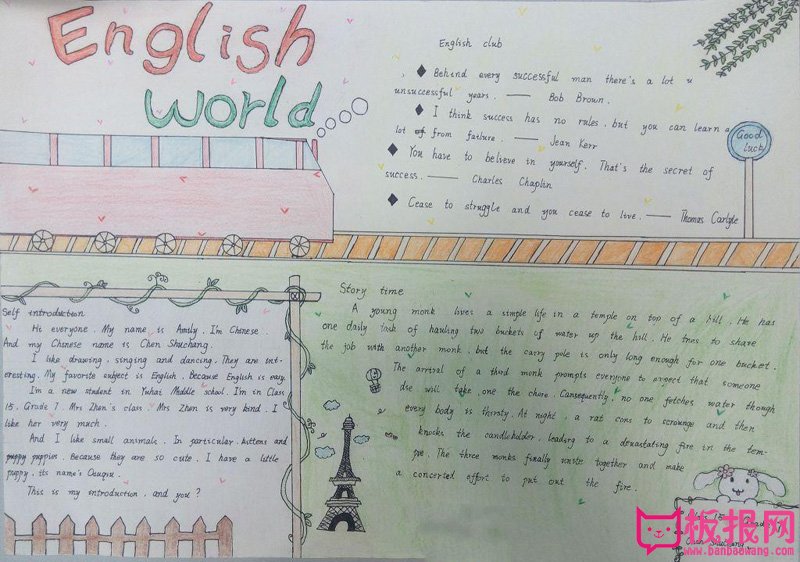 English
World
English club
Behind every successful man there's a lot
unsuccessful years. —— Bob Brown.
I think success has no rules, but you can learn a
lot of from failure. —— Jean Kerr
You have to believe in yourself. That's the secret of
success. —— Charles Chaplin
Cease to struggle and you cease to live. —— Thomas Carlyle
Good
luck
Self introduction
Hi everyone. My name is Amily. I'm Chinese.
And my Chinese name is Chen Shuchang.
I like drawing, singing and dancing. They are int-
eresting. My favorite subject is English. Because English is easy.
I'm a new student in Yuhai Middle school. I'm in Class
15. Grade 7. Mrs Zhen's class. Mrs Zhen is very kind. I
like her very much.
And I like small animals. In particular, kittens and
puppy puppies. Because they are so cute. I have a little
puppy, its name's
This is my introduction, and you?
Story time
A young monk lives a simple life in a temple on top of a hill. He has
one daily task of hauling two buckets of water up the hill. He tries to share
the job with another monk, but the carry pole is only long enough for one bucket.
The arrival of a third monk prompts everyone to expect that someone
else will take one the chore. Consequently, no one fetches water though
every body is thirsty. At night, a rat coms to scrounge and then
knocks the candleholder, leading to a devastating fire in the tem-
ple. The three monks finally unite together and make
a concerted effort to put out the fire.
板报网
www.banbaowang.com